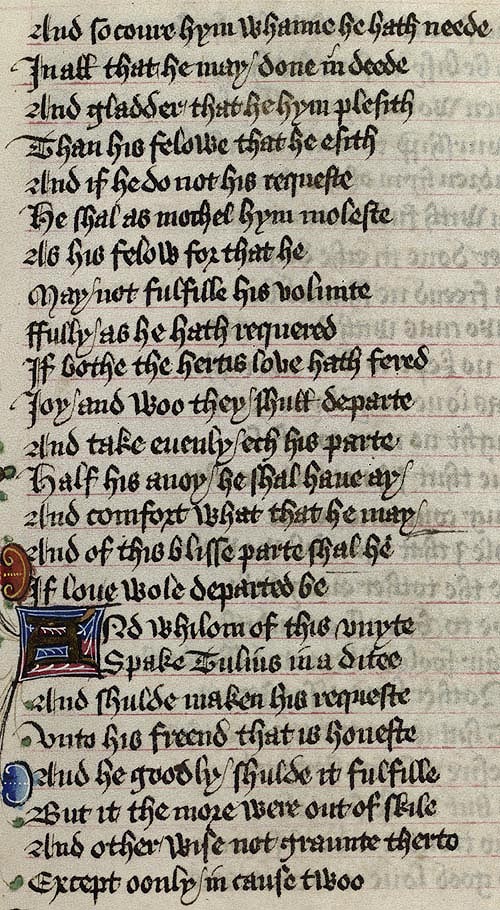 And socoure hym whanne he hath neede
In all that he may / done in deede
And gladder that he hym plesith
Than his felowe that he esith
And if he do not his requeste
He shal as mochel hym moleste
As his felow for that he
May / not fulfille his volunte
ffully / as he hath requered
If bothe the hertis love hath fered
Joy / and woo they / shull departe
And take euenly / ech his parte
Half his anoy / he shal haue ay /
And comfort what that he may /
And of this blisse parte shal he
If loue wole departed be
And whilom of this vnyte
Spake Tulius in a ditee
And shulde maken his requeste
Vnto his freend that is honeste
And he goodly / shulde it fulfille
But it the more were out of skile
And other wise not graunte therto
Except oonly / in cause twoo